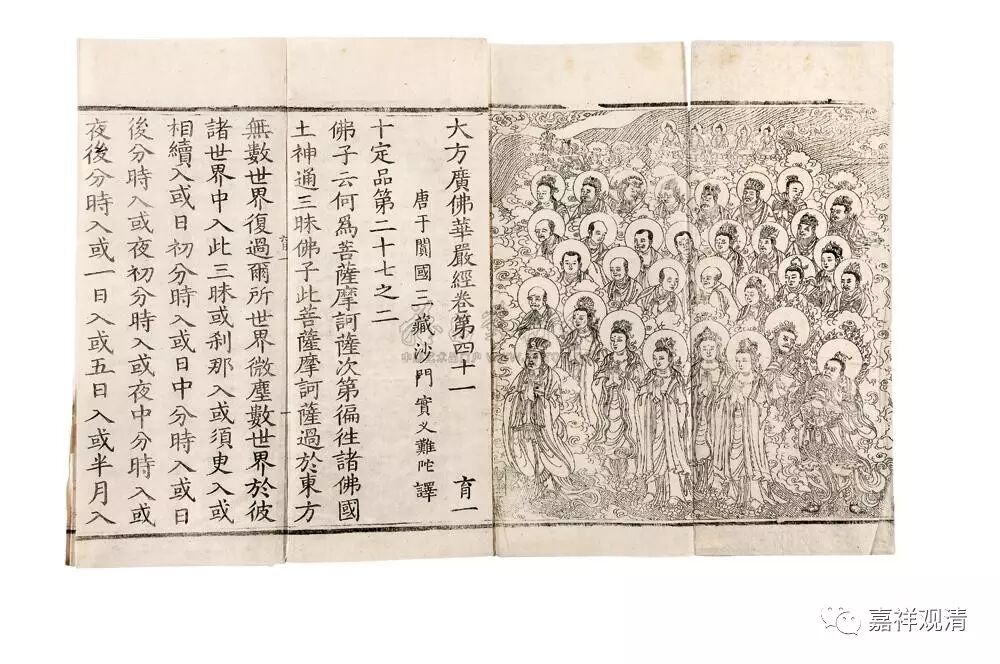 大方廣佛華嚴經卷第四十一 育一
唐于闐國三藏沙門實叉難陀 譯
十定品第二十七之二
佛子云何爲菩薩摩訶薩次第徧徃諸佛國
土神通三昧佛子此菩薩摩訶薩過於東方
無數世界復過爾所世界微塵數世界於彼
諸世界中入此三昧或刹那入或須臾入或
相續入或日初分時入或日中分時入或日
後分時入或夜初分時入或夜中分時入或
夜後分時入或一日入或五日入或半月入
嘉祥观清